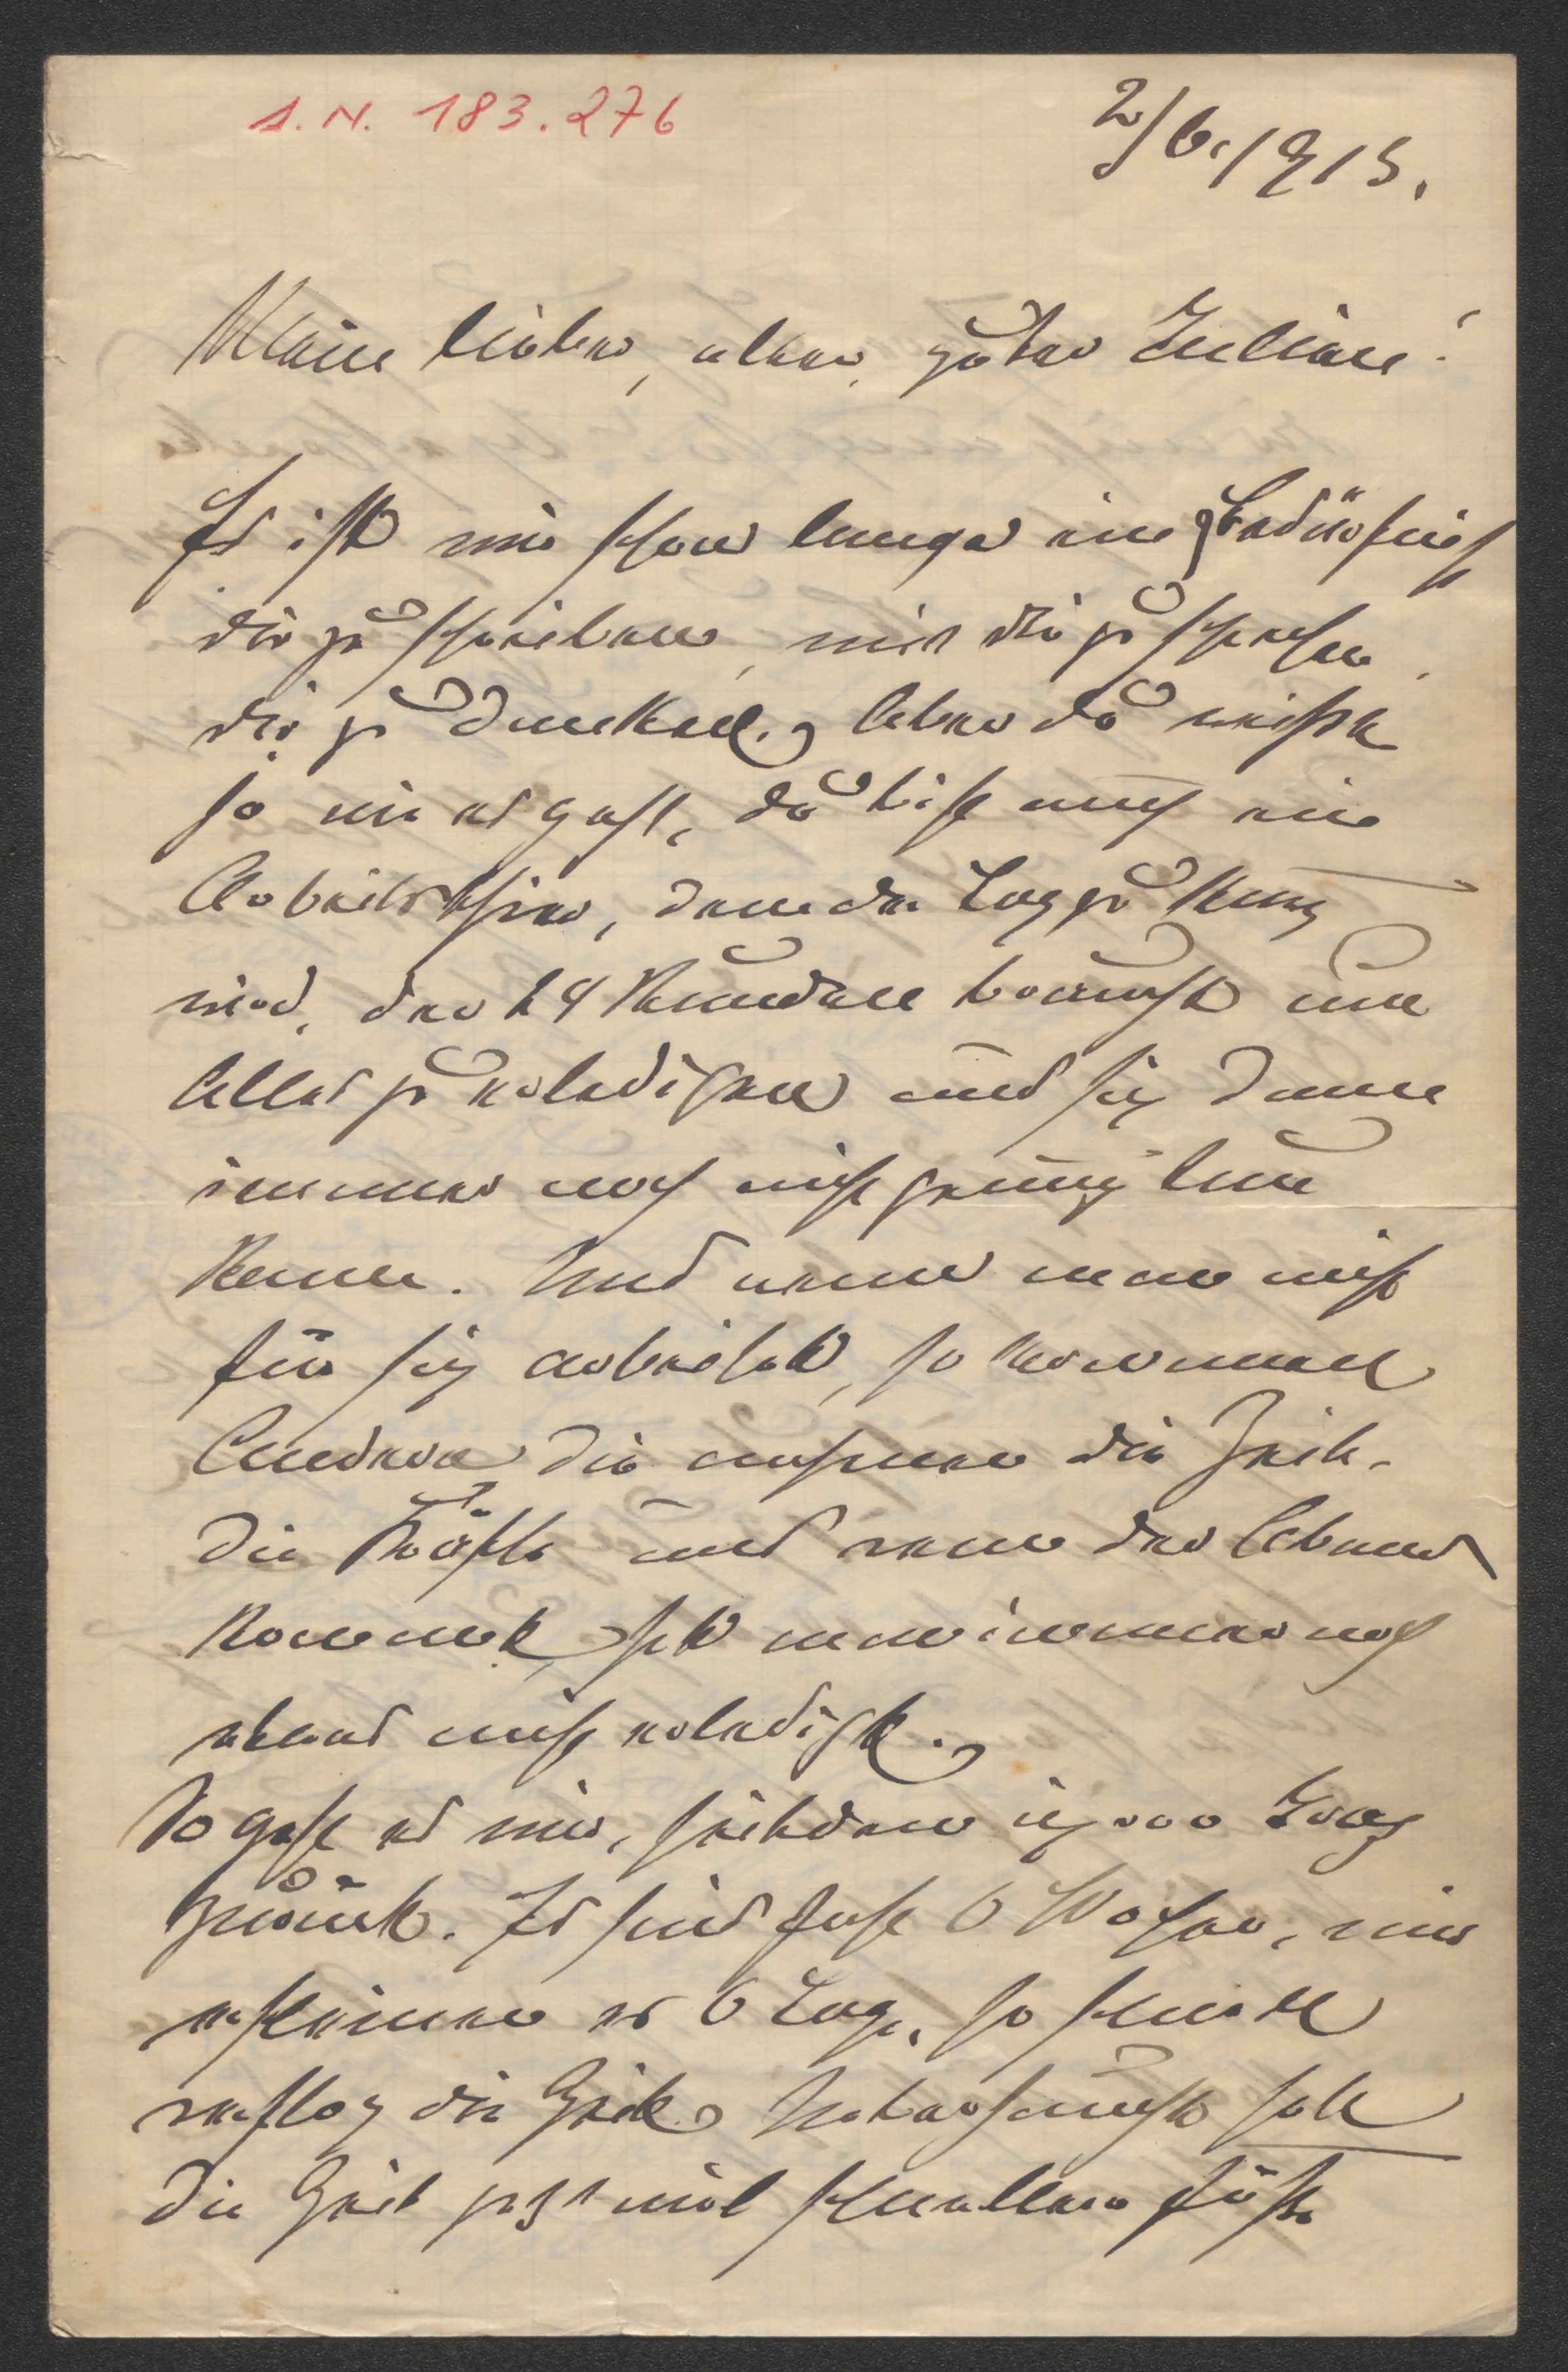 S.N. 183.276
2/6. 1915.
Mein lieber, alter, guter Julian!
Es ist mir schon lange ein Bedürfniß
dir zu schreiben, mit dir zu sprechen,
dir zu danken. Aber du weißt
ja wie es geht, du bist auch ein
Arbeitsthier, dem der Tag zu kurz
wird, der 24 Stunden braucht um
Alles zu erledigen und sich dann
immer noch nicht genug thun
kann. Und wenn man nicht
für sich arbeitet, so kommen
Andere die nehmen die Zeit,
die Kräfte und wenn der Abend
kommt, hat man immer noch
etwas nicht erledigt.
So geht es mir, seitdem ich von Graz
zurück. Es sind fast 6 Wochen, mir
scheinen es 6 Tage, so schnell
verflog die Zeit. Ueberhaupt hat
die Zeit jetzt viel schnellere Füße